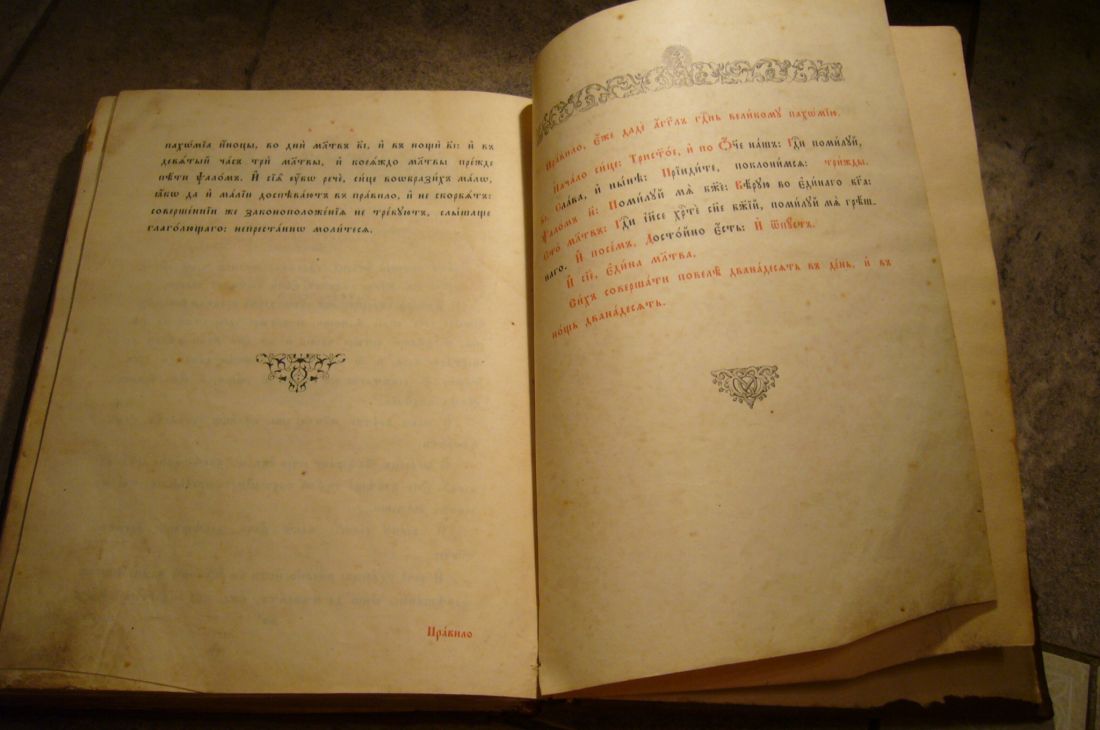 пахѡ́мїѧ и҆́ноцы, во днѝ мл҃твъ в҃і, и҆ въ нощѝ в҃і: и҆ въ
девѧ́тый ча́съ трѝ мл҃твы, и҆ коеѧ́ждо мл҃твы пре́жде
пѣ́ти ѱало́мъ. И҆ сїѧ̑ ᲂу҆́бѡ речѐ, си́це воѡбрази́хъ ма́лѡ,
ꙗ҆́кѡ да и҆ ма́лїи доспѣва́ютъ въ пра́вило, и҆ не скорбѧ́тъ:
соверше́ннїи же законоположе́нїѧ не тре́буютъ, слы́шаще
глаго́лющаго: непреста́ннѡ моли́тесѧ.
Пра́вило
Пра́вило, є҆́же дадѐ а҆́гг҃лъ гд҇ень вели́кому пахѡ́мїю.
Нача́ло си́це: Трист҃о́е, и҆ по Ѻ҆́че на́шъ: Гд҇и поми́луй,
в҃і. Сла́ва, и҆ ны́нѣ: Прїиди́те, поклони́мсѧ: три́жды.
Ѱало́мъ н҃: Поми́луй мѧ̀ бж҃е: Вѣ́рую во є҆ди́наго бг҃а:
Сто̀ мл҃твъ: Гд҇и і҆и҃се хр҇тѐ сн҃е бж҃їй, поми́луй мѧ̀ грѣ́ш-
наго. И҆ посе́мъ, Досто́йно є҆́сть: И҆ ѿпу́стъ.
И҆ сїѐ, є҆ди́на мл҃тва.
Си́хъ соверша́ти повелѣ̀ двана́десѧть въ де́нь, и҆ въ
но́щь двана́десѧть.